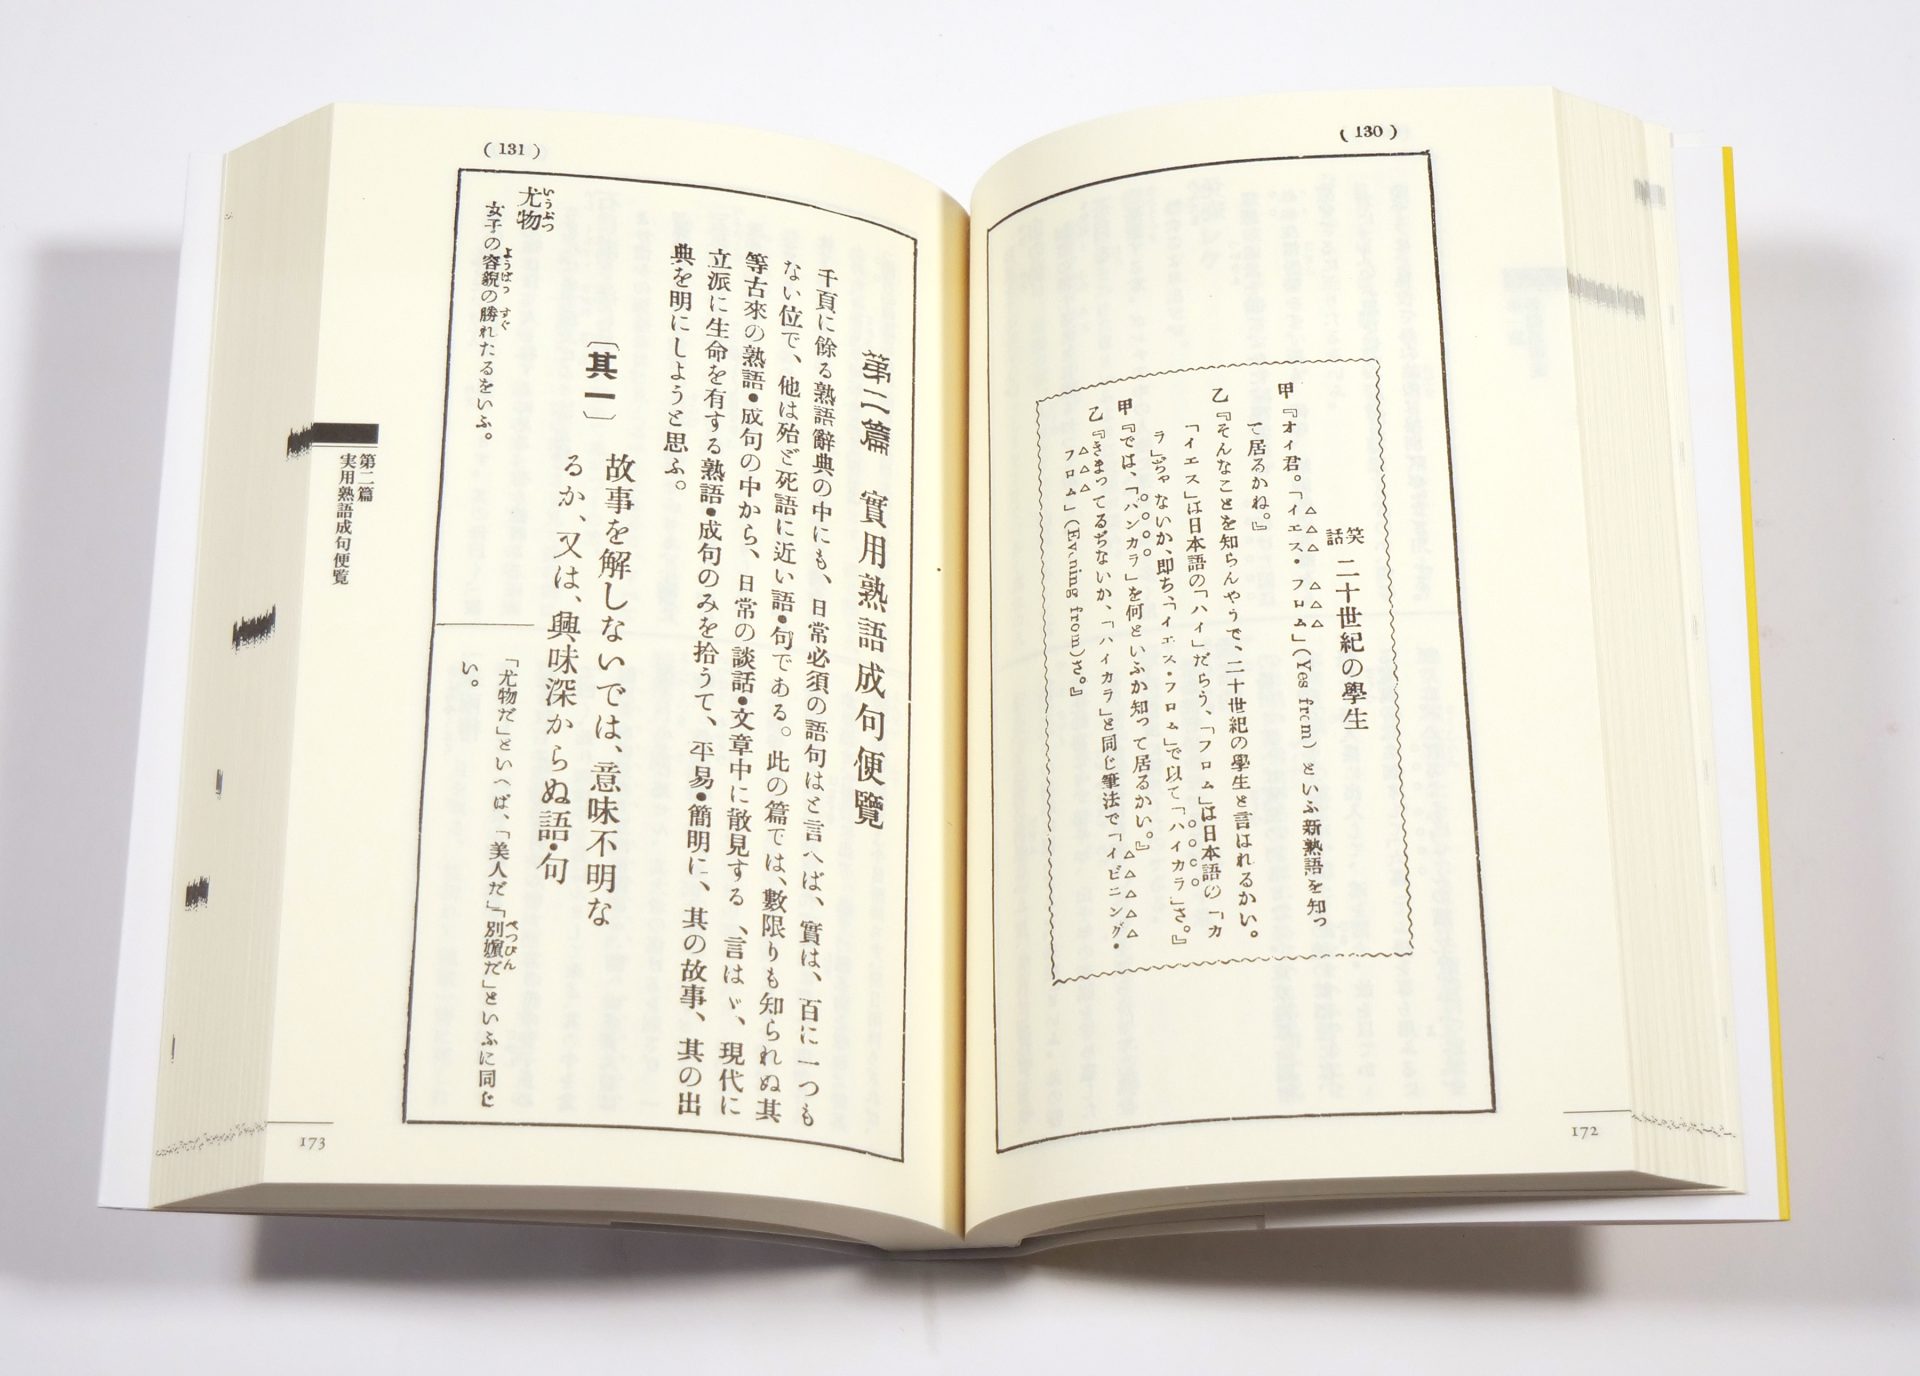 (130)
笑話 二十世紀の學生
甲『オイ君。「イエス・フロム」(Yes from)といふ新熟語を知っ
て居るかね。』
乙『そんなことを知らんやうで、二十世紀の學生と言はれるかい。
「イエス」は日本語の「ハイ」だらう、「フロム」は日本語の「カ
ラ」ぢゃないか、即ち、「イエス・フロム」で以て「ハイカラ」さ。』
甲『では、「バンカラ」を何といふか知って居るかい。』
乙『きまってるぢないか、「ハイカラ」と同じ筆法で「イビニング・
フロム」(Evening from)さ。』
172
(131)
第二篇 實用熟語成句便覽
千頁に餘る熟語辭典の中にも、日常必須の語句はと言へば、實は、百に一つも
ない位で、他は殆ど死語に近い語・句である。此の篇では、數限りも知られぬ其
等古來の熟語・成句の中から、日常の談話・文章中に散見する、言はゞ、現代に
立派に生命を有する熟語・成句のみを拾うて、平易・簡明に、其の故事、其の出
典を明にしようと思ふ。
〔其一〕 故事を解しないでは、意味不明な
るか、又は、興味深からぬ語・句
尤物
いうぶつ
女子の容貌の勝れたるをいふ。
ようばう すぐ
「尤物だ」といへば、「美人だ」「別嬪だ」といふに同じ
べつぴん
い。
第二篇
実用熟語成句便覧
173